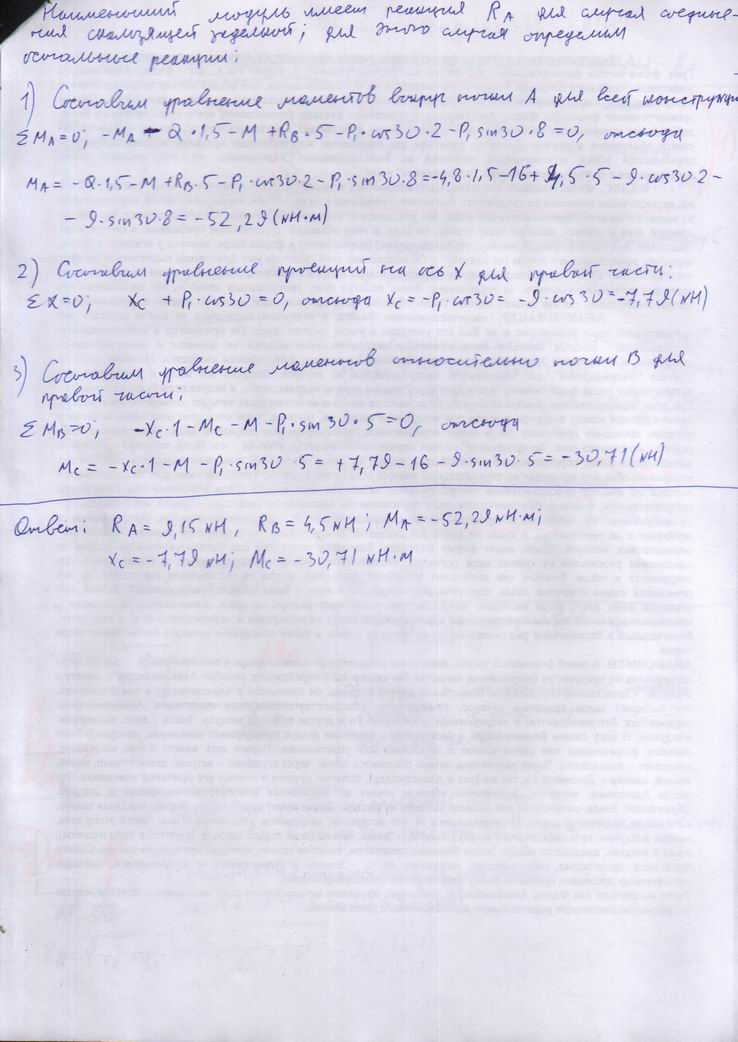 Наименьший модуль имеет реакция R_A для случая соедине-
ния скользящей заделкой; для этого случая определим
остальные реакции:
1) Составим уравнение моментов вокруг точки A для всей конструкции
ΣM_A=0; -M_A - Q·1,5 - M + R_B·5 - P₁·cos30·2 - P₁ sin30·8=0, отсюда
M_A = -Q·1,5 - M + R_B·5 - P₁·cos30·2 - P₁·sin30·8 = -4,8·1,5-16+4,5·5-9·cos30·2-
- 9·sin30·8 = -52,29(кН·м)
2) Составим уравнение проекций на ось X для правой части:
ΣX=0; X_C + P₁·cos30 = 0, отсюда X_C = -P₁·cos30 = -9·cos30=-7,79(кН)
3) Составим уравнение моментов относительно точки B для
правой части;
ΣM_B=0; -X_C·1 - M_C - M - P₁·sin30·5=0, отсюда
M_C = -X_C·1 - M - P₁·sin30·5 = +7,79-16-9·sin30·5= -30,71(кН)
Ответ: R_A = 9,15 кН, R_B = 4,5 кН; M_A = -52,29 кН·м;
X_C = -7,79 кН; M_C = -30,71 кН·м